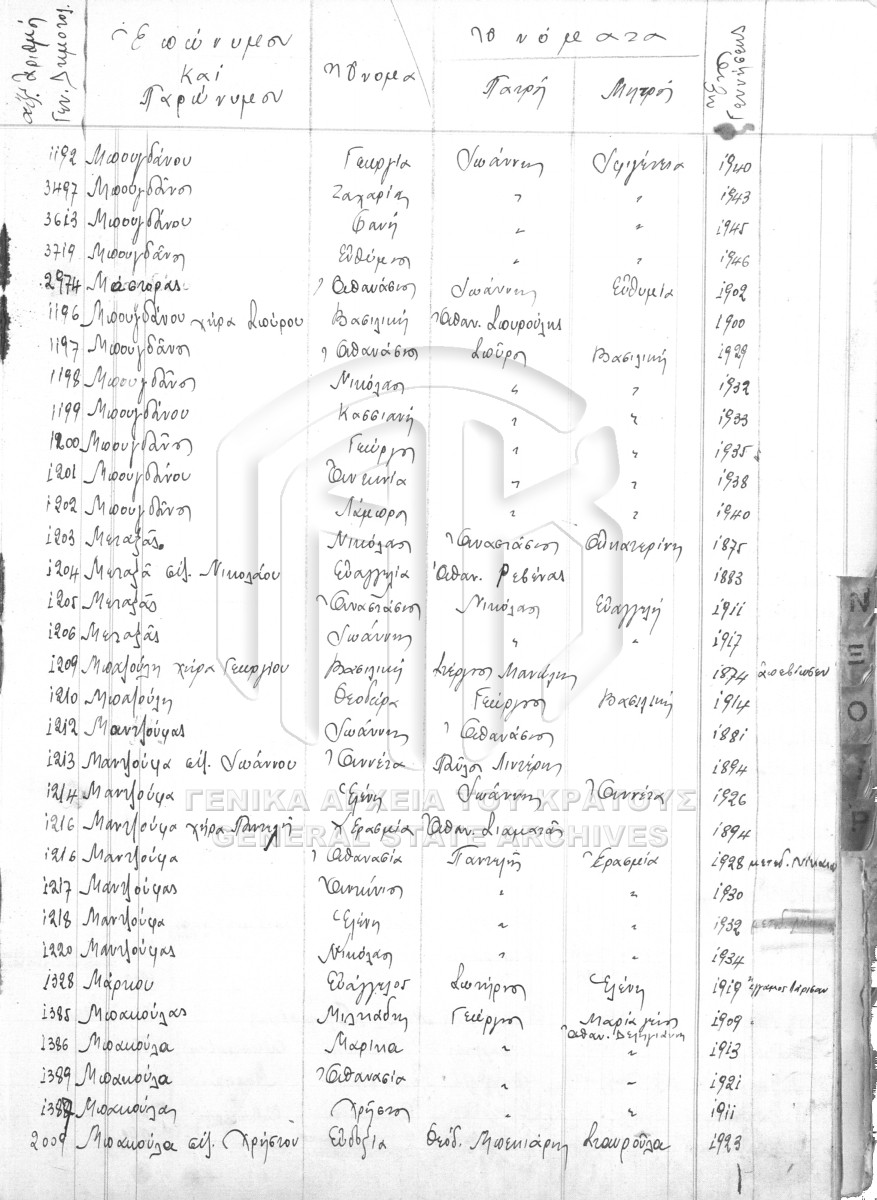 αὔξ. ἀριθμὸς Γεν. Δημοτολ. Ἐπώνυμον καὶ Παρώνυμον Ὄνομα Ὀνόματα Πατρὸς Μητρὸς Γεννήσεως
1192 Μπουγδάνου Γεωργία Ἰωάννης Ἰφιγένεια 1940
3497 Μπουγδᾶνος Ζαχαρίας " " 1943
3613 Μπουγδάνου Φανή " " 1945
3719 Μπουγδᾶνος Εὐθύμιος " " 1946
2974 Μάστορας Ἀθανάσιος Ἰωάννης Εὐθυμία 1902
1196 Μπουγδάνου χήρα Σπύρου Βασιλική Ἀθαν. 1900
1197 Μπουγδᾶνος Ἀθανάσιος Σπῦρος Βασιλική 1929
1198 Μπουγδᾶνος Νικόλαος " " 1932
1199 Μπουγδάνου Κασσιανή " " 1933
1200 Μπουγδᾶνος Γεώργιος " " 1935
1201 Μπουγδάνου " " 1938
1202 Μπουγδᾶνος Λάμπρος " " 1940
1203 Μεταξᾶς Νικόλαος Ἀναστάσιος Αἰκατερίνη 1875
1204 Μεταξᾶ σύζ. Νικολάου Εὐαγγελία Ἀθαν. Ρεβένας 1883
1205 Μεταξᾶς Ἀναστάσιος Νικόλαος Εὐαγγελή 1911
1206 Μεταξᾶς Ἰωάννης " " 1917
1209 Μπατσούλη χήρα Γεωργίου Βασιλική Στέργιος 1874 ἀπεβίωσεν
1210 Μπατσούλη Θεοδώρα Γεώργιος Βασιλική 1914
1212 Μαντζούφας Ἰωάννης Ἀθανάσιος 1881
1213 Μαντζούφα σύζ. Ἰωάννου Ἀννέτα Παῦλος 1894
1214 Μαντζούφα Ἑλένη Ἰωάννης Ἀννέτα 1926
1216 Μαντζούφα χήρα Παντελῆ Ἐρασμία Ἀθαν. Σταματᾶς 1894
1216 Μαντζούφα Ἀθανασία Παντελῆς Ἐρασμία 1928 μετεδ.
1217 Μαντζούφας Ἀντώνιος " " 1930
1218 Μαντζούφα Ἑλένη " " 1932
1220 Μαντζούφας Νικόλαος " " 1934
1328 Μάρκου Εὐάγγελος Σωτήριος Ἑλένη 1919 ἔγγαμος Λάρισαν
1385 Μπακούλας Μιλτιάδης Γεώργιος Μαρία 1909
Ἀθαν. Δεληγιάννη
1386 Μπακούλα Μαρίκα " " 1913
1389 Μπακούλα Ἀθανασία " " 1921
1387 Μπακούλας Χρῆστος " " 1911
2009 Μπακούλα σύζ. Χρήστου Εὐδοξία Θεόδ. Μπεκιάρης Σταυρούλα 1923
ΓΕΝΙΚΑ ΑΡΧΕΙΑ ΤΟΥ ΚΡΑΤΟΥΣ
GENERAL STATE ARCHIVES